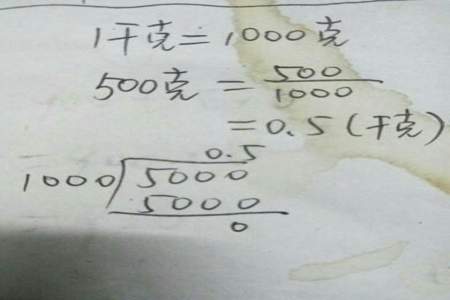 1千克=1000克
500克=500/1000
=0.5(千克)
0.5
1000)5000
5000
0